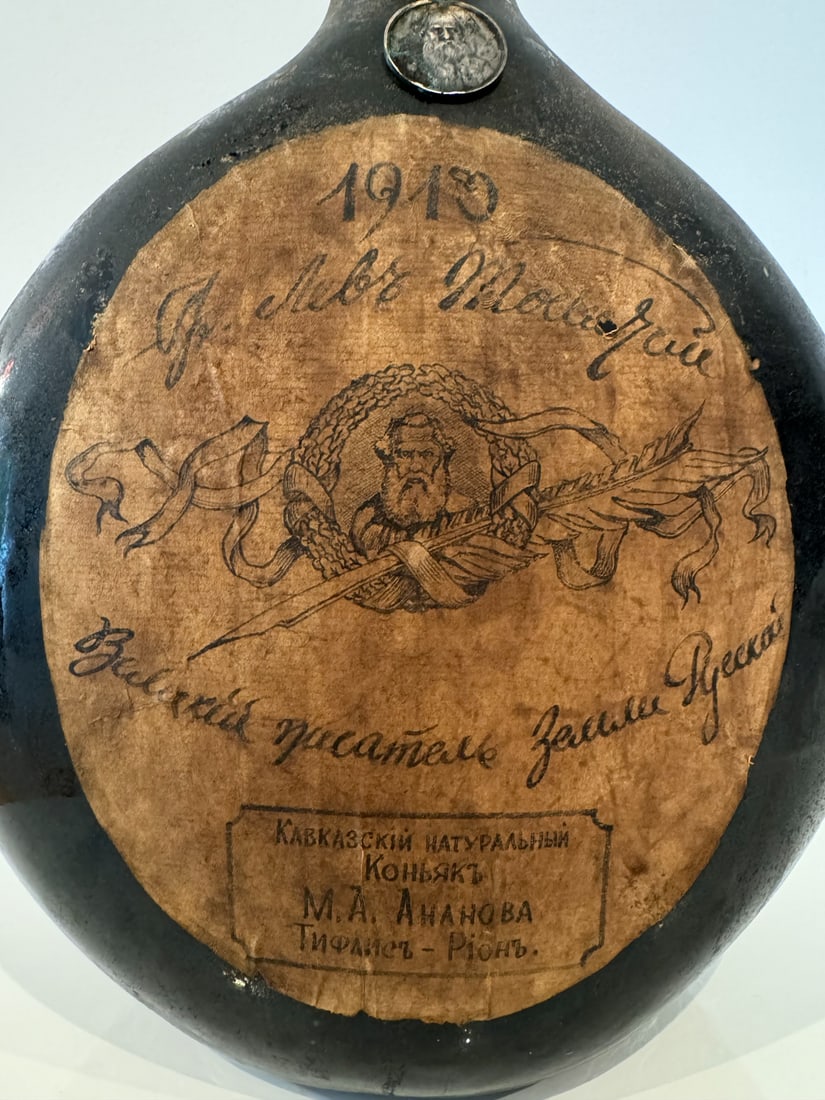 1910
Гр. Левъ Толстой
Великій писатель Земли Русской
Кавказскій натуральный
Коньякъ
М. А. Ананова
Тифлисъ - Ріонъ.